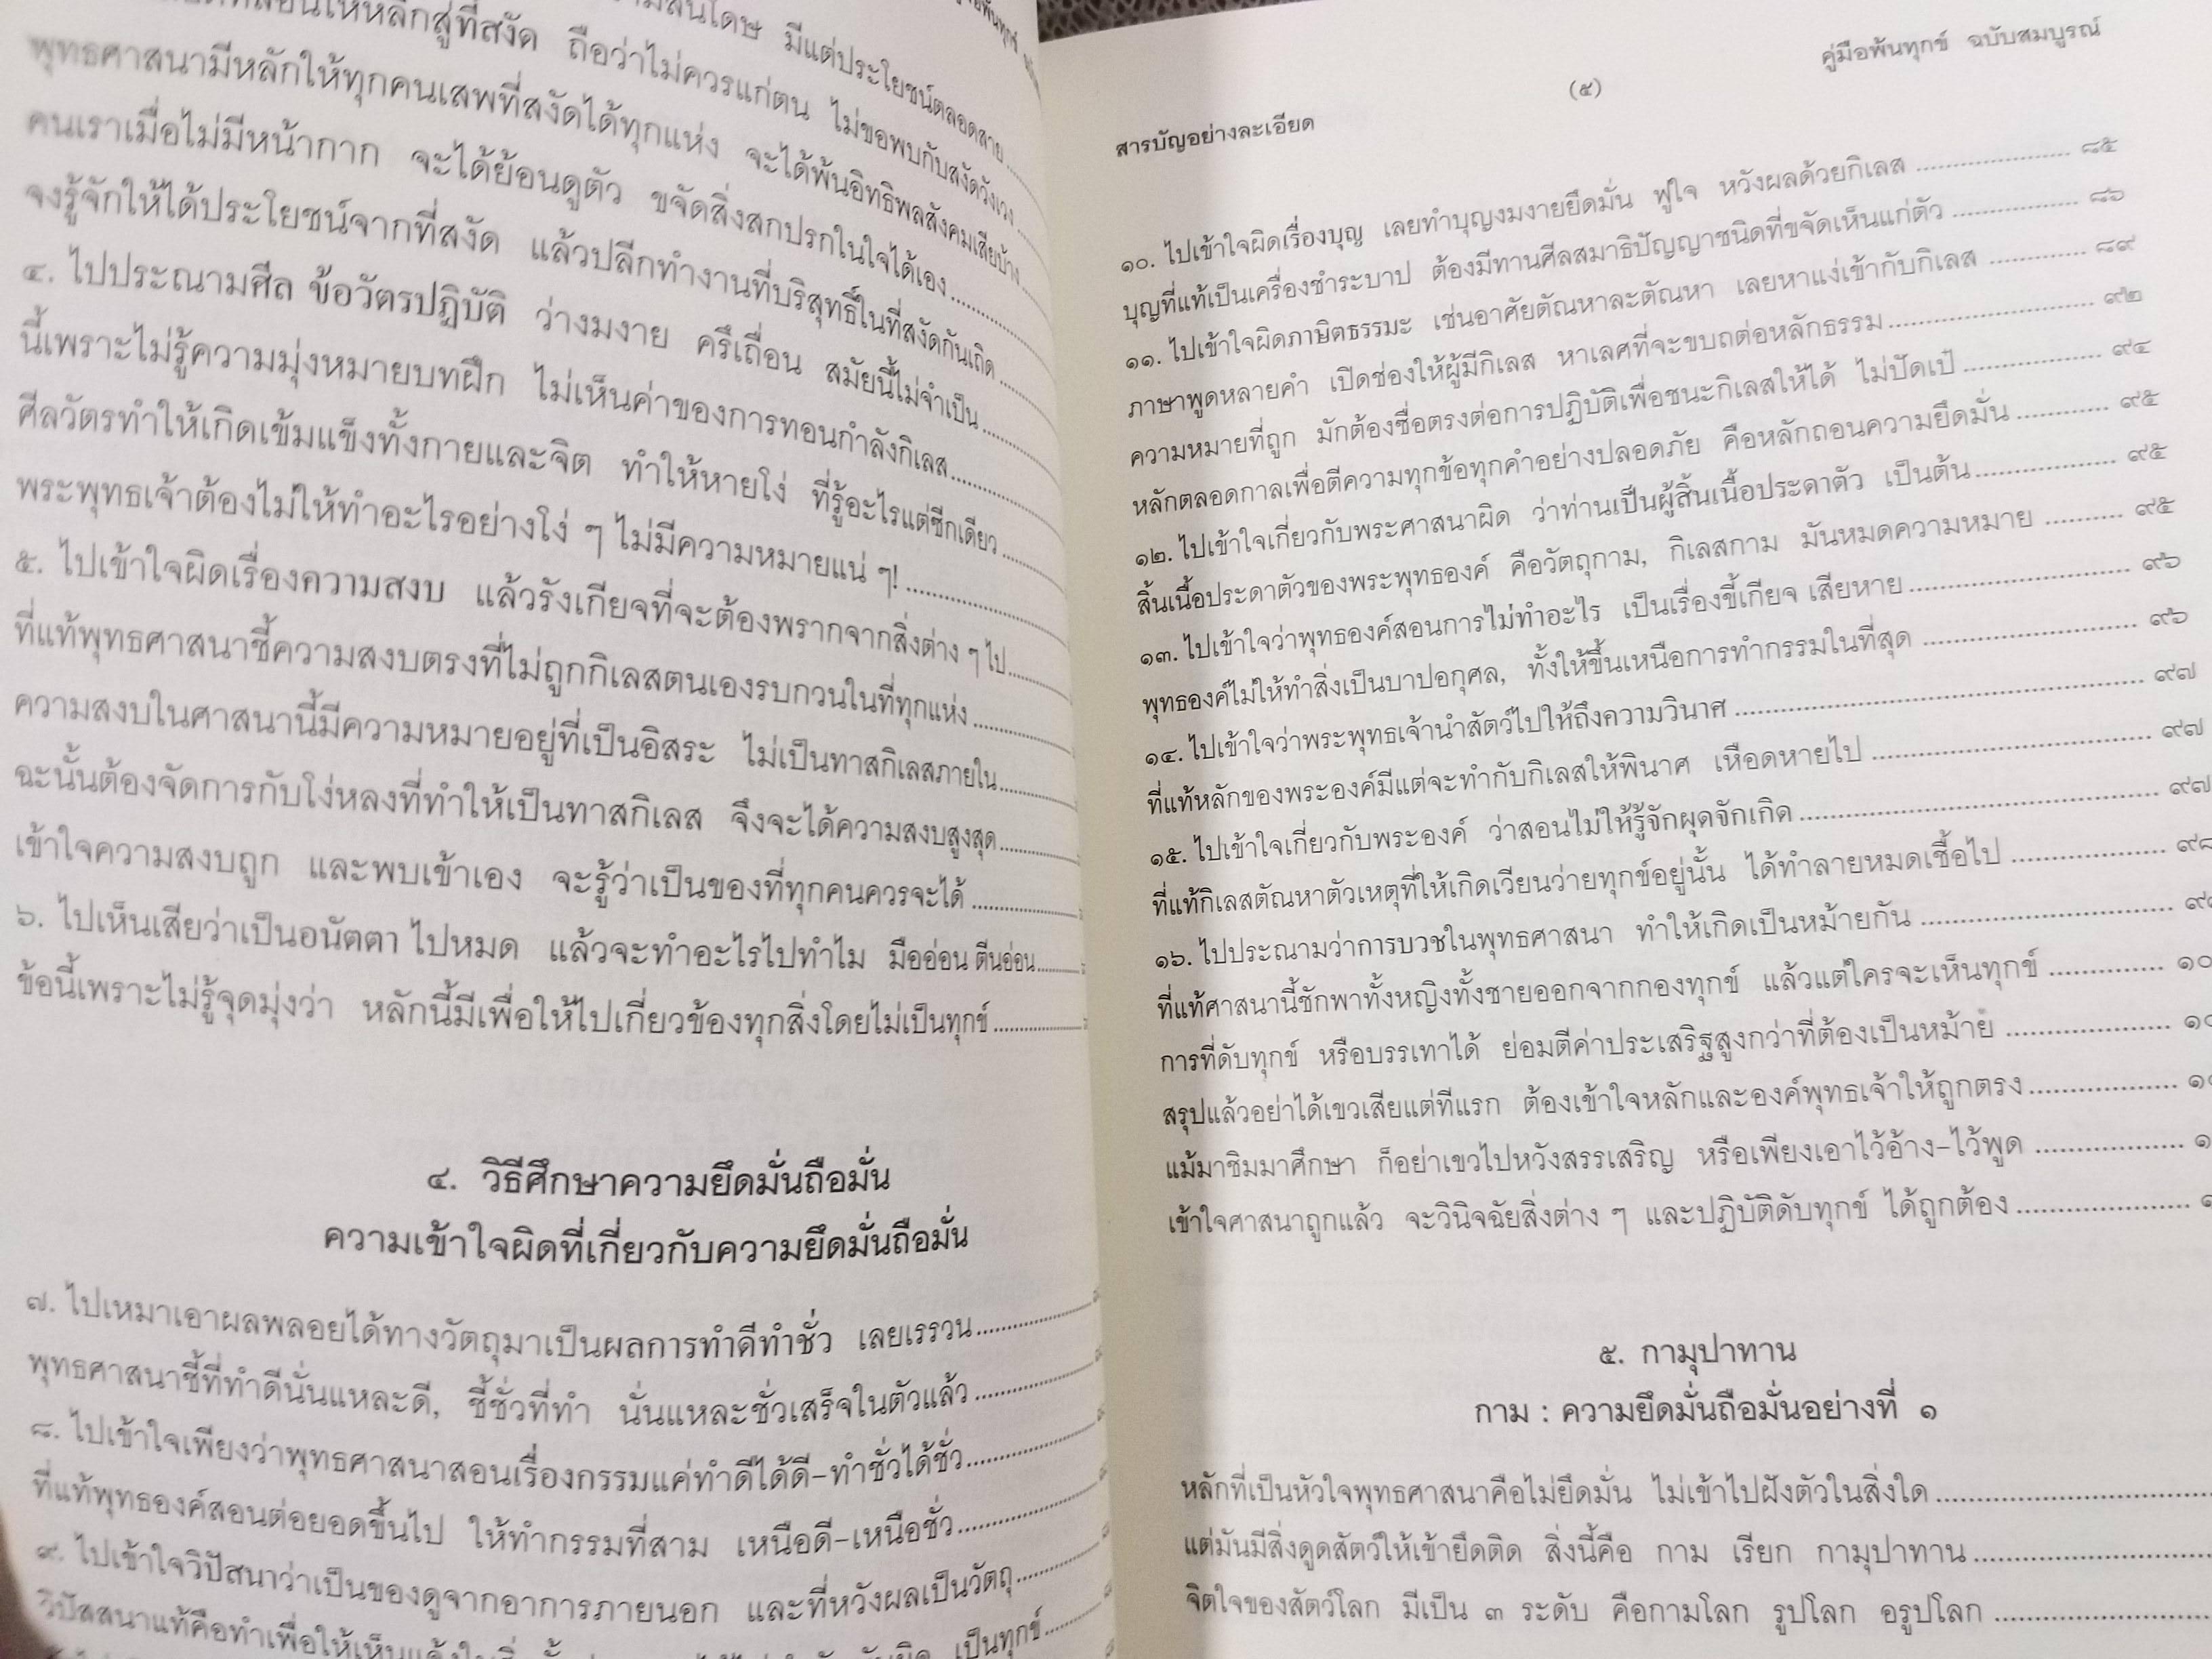 มีแต่ประโยชน์ตลอดสาย
สอนให้หลีกสู่ที่สงัด ถือว่าไม่ควรแก่ตน ไม่ขอพบกับสงัดวังเวง
พุทธศาสนามีหลักให้ทุกคนเสพที่สงัดได้ทุกแห่ง จะได้พ้นอิทธิพลสังคมเสียบ้าง
คนเราเมื่อไม่มีหน้ากาก จะได้ย้อนดูตัว ขจัดสิ่งสกปรกในใจได้เอง
จงรู้จักให้ได้ประโยชน์จากที่สงัด แล้วปลีกทำงานที่บริสุทธิ์ในที่สงัดกันเถิด
๔. ไปประณามศีล ข้อวัตรปฏิบัติ ว่างมงาย ครึเถื่อน สมัยนี้ไม่จำเป็น
นี้เพราะไม่รู้ความมุ่งหมายบทฝึก ไม่เห็นค่าของการทอนกำลังกิเลส
ศีลวัตรทำให้เกิดเข้มแข็งทั้งกายและจิต ทำให้หายโง่ ที่รู้อะไรแต่ซีกเดียว
พระพุทธเจ้าต้องไม่ให้ทำอะไรอย่างโง่ ๆ ไม่มีความหมายแน่ ๆ!
๕. ไปเข้าใจผิดเรื่องความสงบ แล้วรังเกียจที่จะต้องพรากจากสิ่งต่าง ๆ ไป
ที่แท้พุทธศาสนาชี้ความสงบตรงที่ไม่ถูกกิเลสตนเองรบกวนในที่ทุกแห่ง
ความสงบในศาสนานี้มีความหมายอยู่ที่เป็นอิสระ ไม่เป็นทาสกิเลสภายใน
ฉะนั้นต้องจัดการกับโง่หลงที่ทำให้เป็นทาสกิเลส จึงจะได้ความสงบสูงสุด
เข้าใจความสงบถูก และพบเข้าเอง จะรู้ว่าเป็นของที่ทุกคนควรจะได้
๖. ไปเห็นเสียว่าเป็นอนัตตา ไปหมด แล้วจะทำอะไรไปทำไม มืออ่อน ตีนอ่อน
ข้อนี้เพราะไม่รู้จุดมุ่งว่า หลักนี้มีเพื่อให้ไปเกี่ยวข้องทุกสิ่งโดยไม่เป็นทุกข์
๔. วิธีศึกษาความยึดมั่นถือมั่น
ความเข้าใจผิดที่เกี่ยวกับความยึดมั่นถือมั่น
๗. ไปเหมาเอาผลพลอยได้ทางวัตถุมาเป็นผลการทำดีทำชั่ว เลยเรรวน
พุทธศาสนาชี้ที่ทำดีนั่นแหละดี, ชี้ชั่วที่ทำ นั่นแหละชั่วเสร็จในตัวแล้ว
๘. ไปเข้าใจเพียงว่าพุทธศาสนาสอนเรื่องกรรมแค่ทำดีได้ดี-ทำชั่วได้ชั่ว
ที่แท้พุทธองค์สอนต่อยอดขึ้นไป ให้ทำกรรมที่สาม เหนือดี-เหนือชั่ว
๙. ไปเข้าใจวิปัสนาว่าเป็นของดูจากอาการภายนอก และที่หวังผลเป็นวัตถุ
วิปัสสนาแท้คือทำเพื่อให้เห็นแจ้งใน เป็นทุกข์
คู่มือพ้นทุกข์ ฉบับสมบูรณ์
(๕)
สารบัญอย่างละเอียด
๑๐. ไปเข้าใจผิดเรื่องบุญ เลยทำบุญงมงายยึดมั่น ฟูใจ หวังผลด้วยกิเลส ๘๕
บุญที่แท้เป็นเครื่องชำระบาป ต้องมีทานศีลสมาธิปัญญาชนิดที่ขจัดเห็นแก่ตัว ๘๖
๑๑. ไปเข้าใจผิดภาษิตธรรมะ เช่นอาศัยตัณหาละตัณหา เลยหาแง่เข้ากับกิเลส ๘๙
ภาษาพูดหลายคำ เปิดช่องให้ผู้มีกิเลส หาเลศที่จะขบถต่อหลักธรรม ๙๒
ความหมายที่ถูก มักต้องซื่อตรงต่อการปฏิบัติเพื่อชนะกิเลสให้ได้ ไม่ปัดเป๋ ๙๔
หลักตลอดกาลเพื่อตีความทุกข้อทุกคำอย่างปลอดภัย คือหลักถอนความยึดมั่น ๙๕
๑๒. ไปเข้าใจเกี่ยวกับพระศาสนาผิด ว่าท่านเป็นผู้สิ้นเนื้อประดาตัว เป็นต้น ๙๕
สิ้นเนื้อประดาตัวของพระพุทธองค์ คือวัตถุกาม, กิเลสกาม มันหมดความหมาย ๙๕
๑๓. ไปเข้าใจว่าพุทธองค์สอนการไม่ทำอะไร เป็นเรื่องขี้เกียจ เสียหาย ๙๖
พุทธองค์ไม่ให้ทำสิ่งเป็นบาปอกุศล, ทั้งให้ขึ้นเหนือการทำกรรมในที่สุด ๙๖
๑๔. ไปเข้าใจว่าพระพุทธเจ้านำสัตว์ไปให้ถึงความวินาศ ๙๗
ที่แท้หลักของพระองค์มีแต่จะทำกับกิเลสให้พินาศ เหือดหายไป ๙๗
๑๕. ไปเข้าใจเกี่ยวกับพระองค์ ว่าสอนไม่ให้รู้จักผุดจักเกิด ๙๗
ที่แท้กิเลสตัณหาตัวเหตุที่ให้เกิดเวียนว่ายทุกข์อยู่นั้น ได้ทำลายหมดเชื้อไป ๙๘
๑๖. ไปประณามว่าการบวชในพุทธศาสนา ทำให้เกิดเป็นหม้ายกัน
ที่แท้ศาสนานี้ชักพาทั้งหญิงทั้งชายออกจากกองทุกข์ แล้วแต่ใครจะเห็นทุกข์
การที่ดับทุกข์ หรือบรรเทาได้ ย่อมตีค่าประเสริฐสูงกว่าที่ต้องเป็นหม้าย
สรุปแล้วอย่าได้เขวเสียแต่ทีแรก ต้องเข้าใจหลักและองค์พุทธเจ้าให้ถูกตรง
แม้มาชิมมาศึกษา ก็อย่าเขวไปหวังสรรเสริญ หรือเพียงเอาไว้อ้าง-ไว้พูด
เข้าใจศาสนาถูกแล้ว จะวินิจฉัยสิ่งต่าง ๆ และปฏิบัติดับทุกข์ ได้ถูกต้อง
๕. กามุปาทาน
กาม : ความยึดมั่นถือมั่นอย่างที่ ๑
หลักที่เป็นหัวใจพุทธศาสนาคือไม่ยึดมั่น ไม่เข้าไปฝังตัวในสิ่งใด
แต่มันมีสิ่งดูดสัตว์ให้เข้ายึดติด สิ่งนี้คือ กาม เรียก กามุปาทาน
จิตใจของสัตว์โลก มีเป็น ๓ ระดับ คือกามโลก รูปโลก อรูปโลก